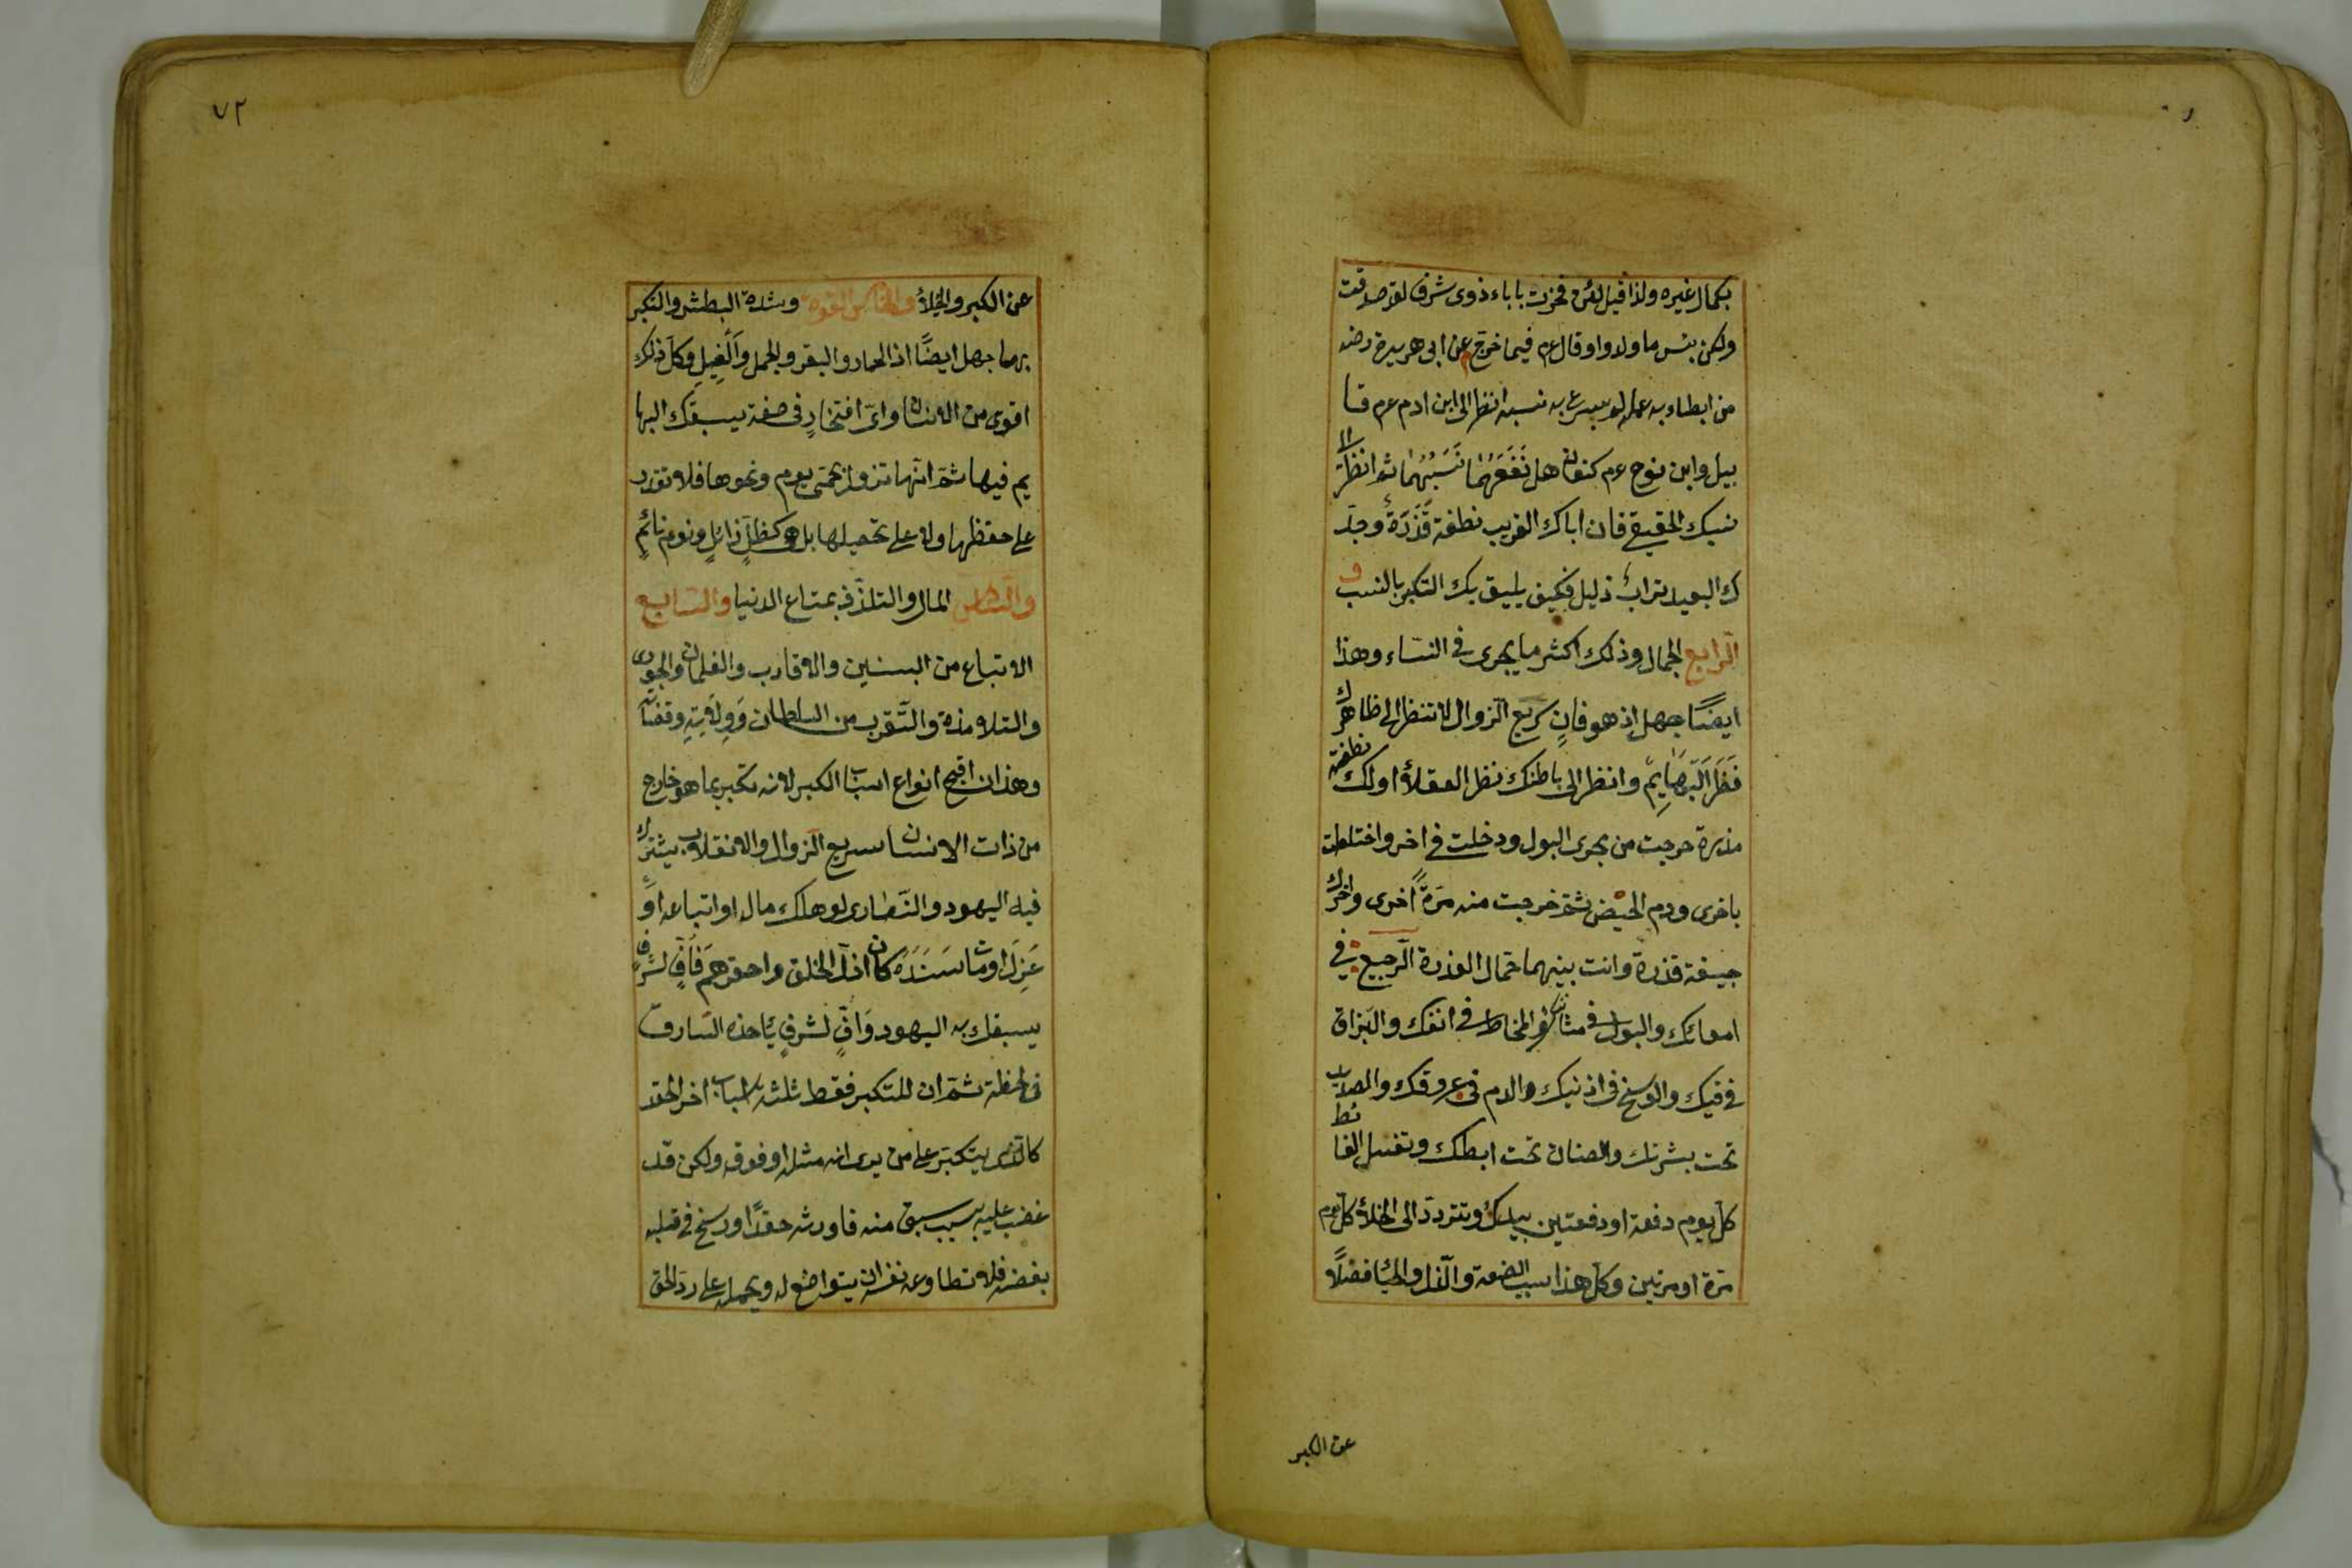 بكمال غيره ولذا قيل لئن فخرت باباء ذوى شرف لقد صدقت
ولكن بئس ما ولدوا وقال عم فيما خرج م عن ابى هريرة رضه
من ابطاء به عمله لم يسرع به نسبه انظر الى ابن ادم عم قا
بيل وابن نوح عم كنعان هل نَفَعَهُمَا نَسَبُهُمَا ثم انظر الى
نسبك الحقيقى فان اباك القريب نطفة قَذَرَةٌ وجدّ
ك البعيد تراب ذليل فكيف يليق بك التكبر بالنسب و
الرابع الجمال وذلك اكثر ما يجرى فى النساء وهذا
ايضًا جهل اذ هو فانٍ سريع الزوال لا تنظر الى ظاهرك
نَظَرَ الْبَهَايِمِ وانظر الى باطنك نظر العقلاء اولك نطفة
مذرة خرجت من مجرى البول ودخلت فى اخر واختلطت
باخرى ودم الحيض ثم خرجت منه مَرّةً اخرى واخرك
جيفة قذرة وانت بينهما حمال العذرة الرجيع فى
امعائك والبول فى مثانتك والمخاط فى انفك والبزاق
فى فيك والوسخ فى اذنيك والدم فى عروقك والصديد
تحت بشرتك والصنان تحت ابطك وتغسل الغائط
كل يوم دفعة او دفعتين بيدك وتتردد الى الخلاء كل يوم
مرّة او مرتين وكل هذا سبب الضعة والذل والحياء فضلًا
عن الكبر
٧٢
عن الكبر والخيلاء والخامس القوة وشدة البطش والتكبر
بهما جهل ايضًا اذ الحمار والبقر والجمل وَالْفِيلِ وكل ذلك
اقوى من الانسان واىّ افتخارٍ فى صفة يسبقك البها
يم فيها ثم انها تزول بحمّى يوم ونحوها فلا تقدر
على حفظها ولا على تحصيلها بل هى كظلٍّ زائلٍ ونوم نائمٍ
والسادس المال والتلذذ بمتاع الدنيا والسابع
الاتباع من البنين والاقارب والغلمان والجوارى
والتلامذة والتقرب من السلطان وَوِلَايَتِهِ وقضائه
وهذان اقبح انواع اسباب الكبر لانه تكبر بما هو خارج
من ذات الانسان سريع الزوال والانقلاب يشترك
فيه اليهود والنصارى لو هلك ماله او اتباعه اَوْ
عَزِلَ او مات سَنَدَهُ كان اذل الخلق واحقرهم فَاُفٍّ لشرفٍ
يسبقك به اليهود وَاُفٍّ لشرفٍ ياخذه السارق
فى لحظة ثم ان للتكبر فقط ثلثة اسباب اخر الحقد
كالذى يتكبر على من يرى انه مثله او فوقه ولكن قد
غضب عليه بسبب سبق منه فاورثه حقدًا ورسخ فى قلبه
بغضه فلا تطاوعه نفسه ان يتواضع له ويحمله على رد الحق